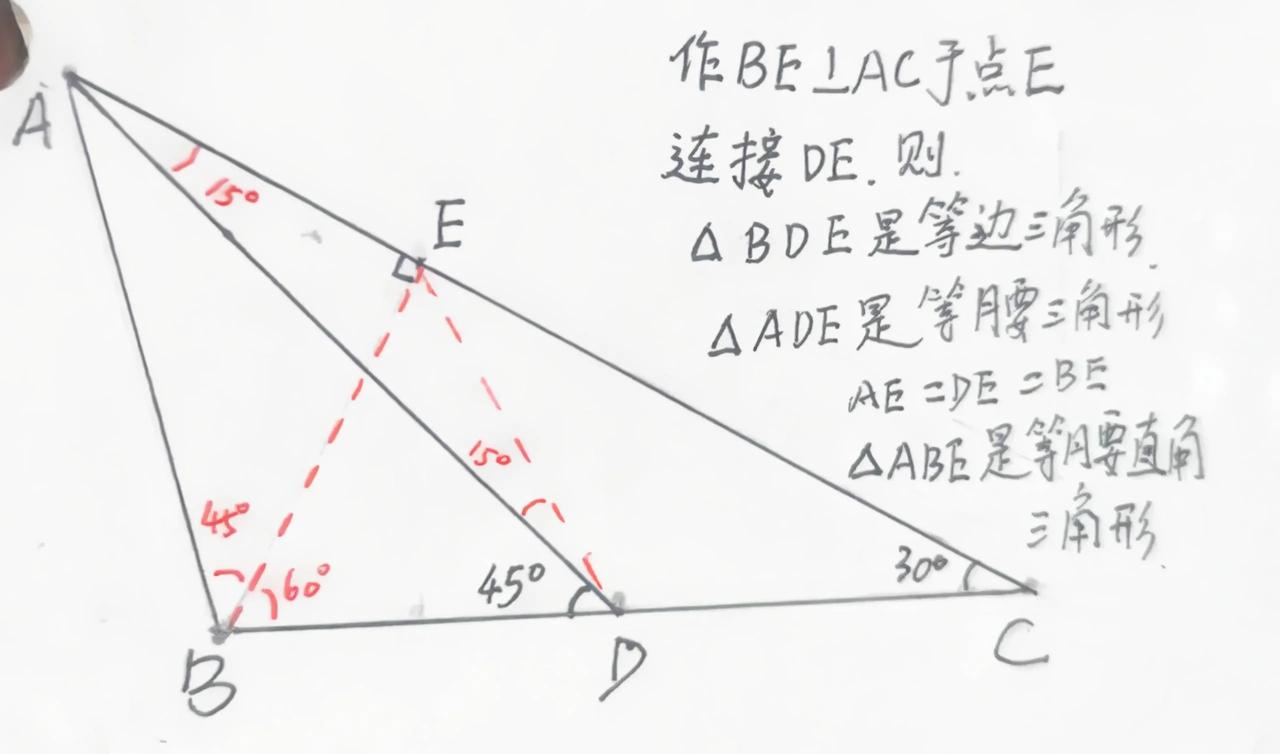 作BE⊥AC于点E
连接DE.则.
△BDE是等边三角形.
△ADE是等腰三角形
AE=DE=BE
△ABE是等腰直角
三角形.
A
15°
E
15°
45°
60°
45°
30°
B
D
C